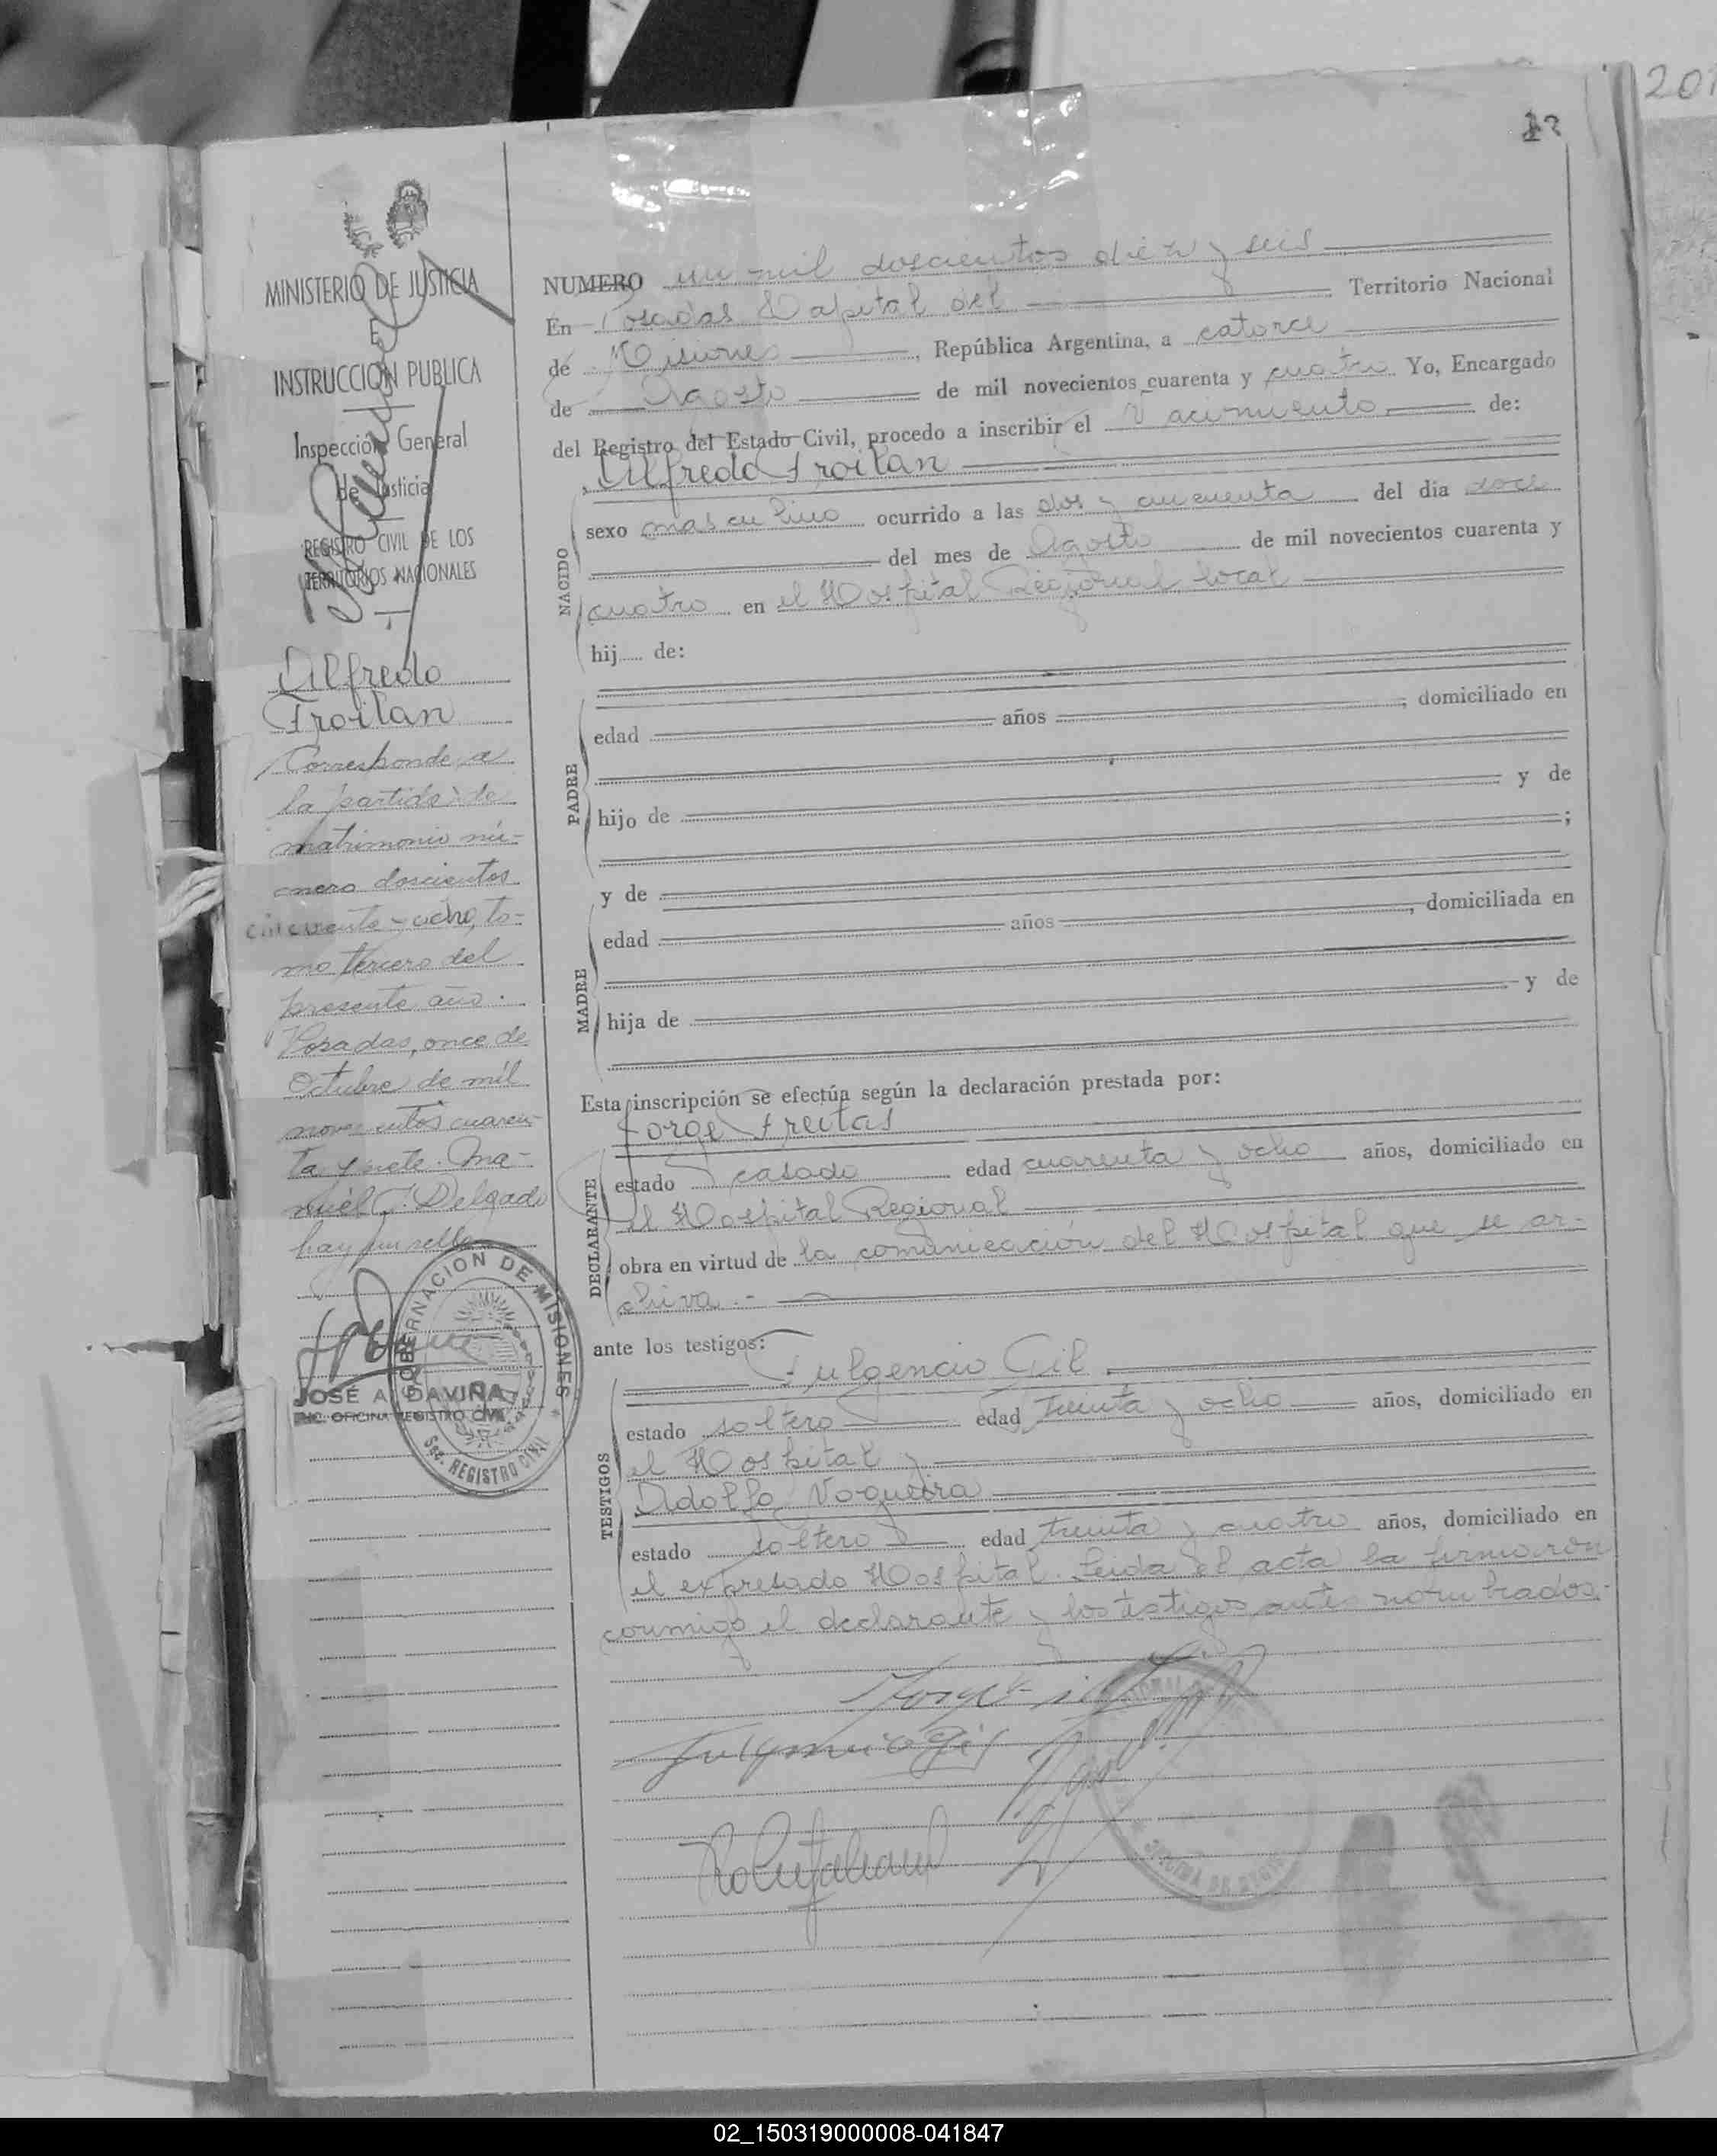 201
MINISTERIO DE JUSTICIA
E
INSTRUCCION PUBLICA
Inspección General
de Justicia
REGISTRO CIVIL DE LOS
TERRITORIOS NACIONALES
Alfredo
Froilan
Corresponde a
la partida de
matrimonio nú-
mero doscientos
cincuenta y ocho, to-
mo tercero del
presente año.
Posadas, once de
Octubre de mil
novecientos cuaren-
ta y siete. Ma-
nuel J. Delgado
hay un sello
GOBERNACION DE MISIONES
Sec. REGISTRO CIVIL
JOSÉ A. DAVIÑA
ENC. OFICINA REGISTRO CIVIL
NUMERO un mil doscientos diez y seis
En Posadas Capital del Territorio Nacional
de Misiones, República Argentina, a catorce
de Agosto de mil novecientos cuarenta y cuatro Yo, Encargado
del Registro del Estado Civil, procedo a inscribir el Nacimiento de:
Alfredo Froilan
NACIDO
sexo masculino ocurrido a las dos y cincuenta del dia doce
del mes de Agosto de mil novecientos cuarenta y
cuatro en el Hospital Regional local
hij de:
PADRE
edad años, domiciliado en
hijo de y de
;
y de
MADRE
edad años, domiciliada en
hija de y de
Esta inscripción se efectúa según la declaración prestada por:
Jorge Freitas
DECLARANTE
estado casado edad cuarenta y ocho años, domiciliado en
el Hospital Regional
obra en virtud de la comunicación del Hospital que se ar-
chiva.-
ante los testigos:
Fulgencio Gil
TESTIGOS
estado soltero edad treinta y ocho años, domiciliado en
el Hospital y
Adolfo Nogueira
estado soltero edad treinta y cuatro años, domiciliado en
el expresado Hospital. Leida el acta la firmaron
conmigo el declarante y los testigos antes nombrados.-
Fulgencio Gil
02_150319000008-041847